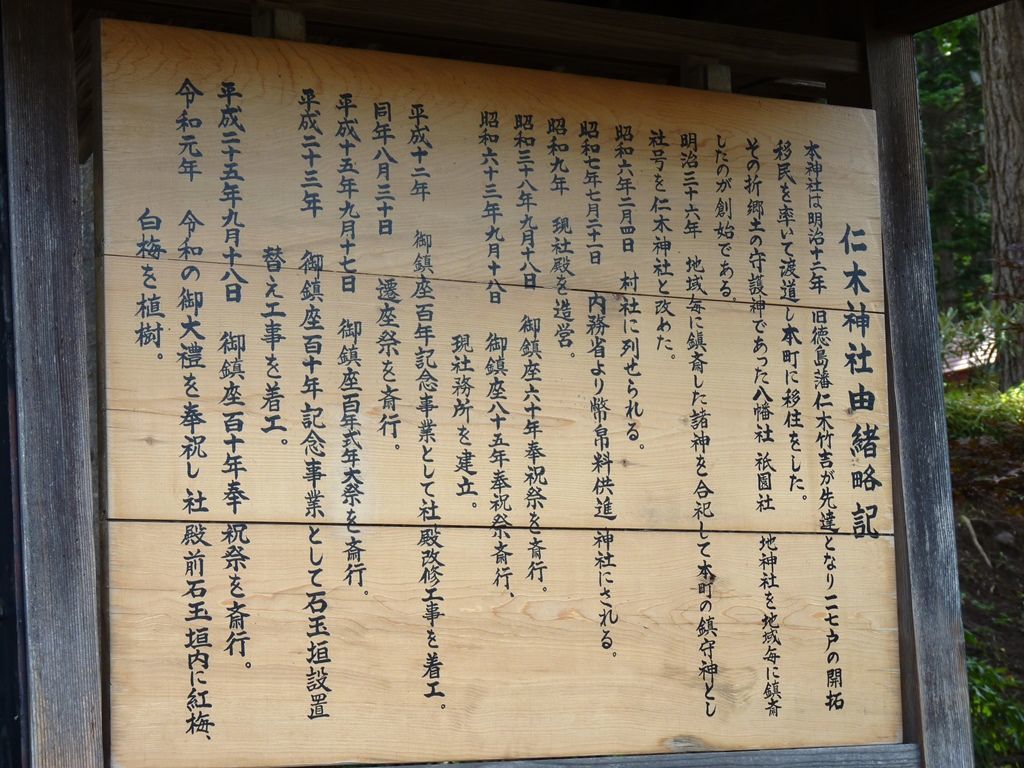 仁木神社由緒略記
本神社は明治十二年 旧徳島藩仁木竹吉が先達となり一二七戸の開拓
移民を率いて渡道し本町に移住をした。
その折郷土の守護神であった八幡社 祇園社 地神社を地域毎に鎮斎
したのが創始である。
明治三十六年 地域毎に鎮斎した諸神を合祀して本町の鎮守神とし
社号を仁木神社と改めた。
昭和六年二月四日 村社に列せられる。
昭和七年七月二十一日 内務省より幣帛料供進 神社にされる。
昭和九年 現社殿を造営。
昭和三十八年九月十八日 御鎮座六十年奉祝祭を斎行。
昭和六十三年九月十八日 御鎮座八十五年奉祝祭斎行、
現社務所を建立。
平成十二年 御鎮座百年記念事業として社殿改修工事を着工。
同年八月三十日 遷座祭を斎行。
平成十五年九月十七日 御鎮座百年式年大祭を斎行。
平成二十三年 御鎮座百十年記念事業として石玉垣設置
替え工事を着工。
平成二十五年九月十八日 御鎮座百十年奉祝祭を斎行。
令和元年 令和の御大禮を奉祝し社殿前石玉垣内に紅梅、
白梅を植樹。